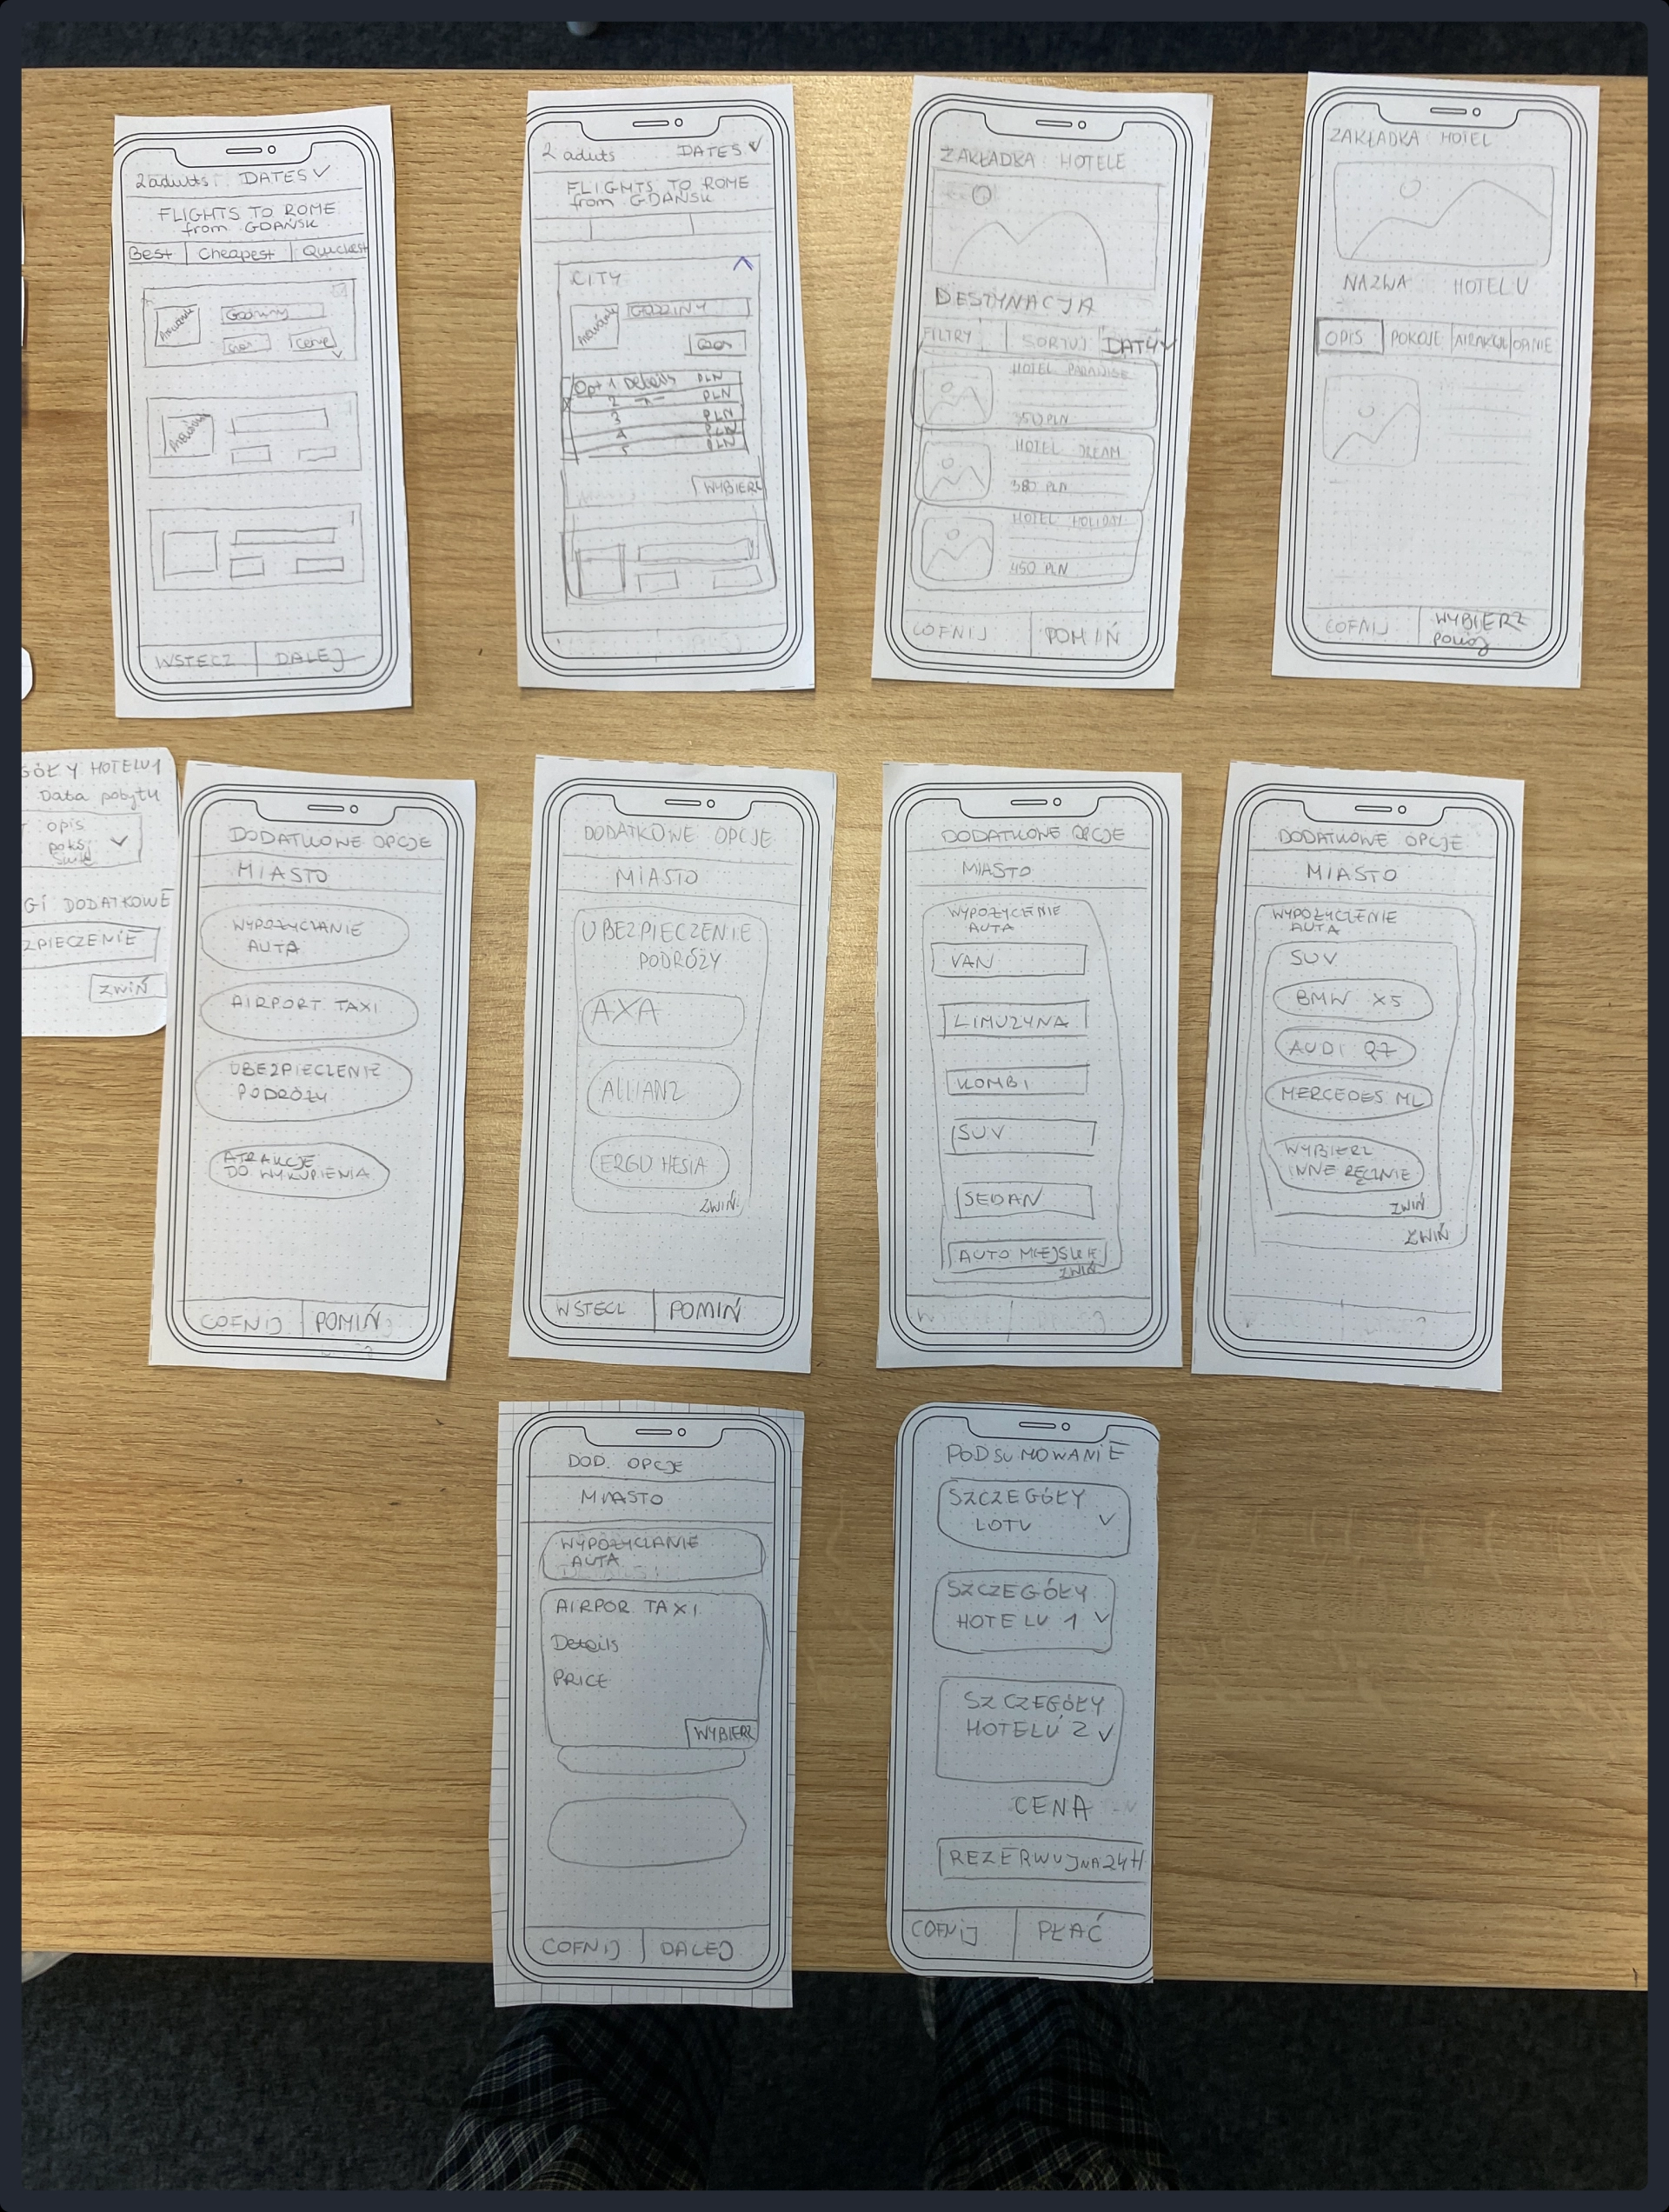 2 adults: DATES
FLIGHTS TO ROME
from GDAŃSK
Best Cheapest Quickest
Godziny
Cena
WSTECZ DALEJ
2 aduts DATES
FLIGHTS TO ROME
from GDAŃSK
CITY
GODZINY
Opt 1 Details PLN
2 PLN
3 PLN
4 PLN
5 PLN
WYBIERZ
ZAKŁADKA: HOTELE
DESTYNACJA
FILTRY SORTUJ DATY
HOTEL PARADISE
350 PLN
HOTEL DREAM
380 PLN
HOTEL HOLIDAY
450 PLN
COFNIJ POMIŃ
ZAKŁADKA HOTEL
NAZWA HOTELU
OPIS POKOJE
COFNIJ WYBIERZ
pokój
GÓŁY HOTELU 1
Data pobytu
opis
GI DODATKOWE
ZPIECZENIE
ZWIŃ
DODATKOWE OPCJE
MIASTO
WYPOŻYCZANIE
AUTA
AIRPORT TAXI
UBEZPIECZENIE
PODRÓŻY
ATRAKCJE
DO WYKUPIENIA
COFNIJ POMIŃ
DODATKOWE OPCJE
MIASTO
UBEZPIECZENIE
PODRÓŻY
AXA
ALLIANZ
ERGO HESIA
ZWIŃ
WSTECZ POMIŃ
DODATKOWE OPCJE
MIASTO
WYPOŻYCZENIE
AUTA
VAN
LIMUZYNA
KOMBI
SUV
SEDAN
AUTO MIEJSKIE
ZWIŃ
DODATKOWE OPCJE
MIASTO
WYPOŻYCZENIE
AUTA
SUV
BMW X5
AUDI Q7
MERCEDES ML
WYBIERZ
INNE RĘCZNIE
ZWIŃ
ZWIŃ
DOD. OPCJE
MIASTO
WYPOŻYCZANIE
AUTA
AIRPOR TAXI
Details
PRICE
WYBIERZ
COFNIJ DALEJ
PODSUMOWANIE
SZCZEGÓŁY
LOTU
SZCZEGÓŁY
HOTELU 1
SZCZEGÓŁY
HOTELU 2
CENA
REZERWUJ NA 24H
COFNIJ PŁAĆ